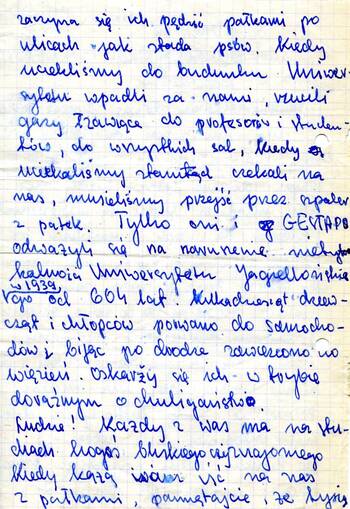 zaczyna się ich pędzić pałkami po
ulicach jak stada psów. Kiedy
uciekliśmy do budynku Uniwer-
sytetu wpadli za nami, rzucili
gazy łzawiące do profesorów i studen-
tów, do wszystkich sal, kiedy
uciekaliśmy stamtąd czekali na
nas, musieliśmy przejść przez szpaler
z pałek. Tylko oni i GESTAPO
odważyli się na naruszenie nietyka
kalności Uniwersytetu Jagiellońskie
w 1939
go od 604 lat. Kilkadziesiąt dziew-
cząt i chłopców porwano do samocho-
dów i bijąc po drodze zawieziono do
więzień. Oskarży się ich w trybie
doraźnym o chuligaństwo.
Ludzie! Każdy z was ma na stu-
diach kogoś bliskiego czy znajomego
Kiedy każą wam iść na nas
z pałkami, pamiętajcie, że